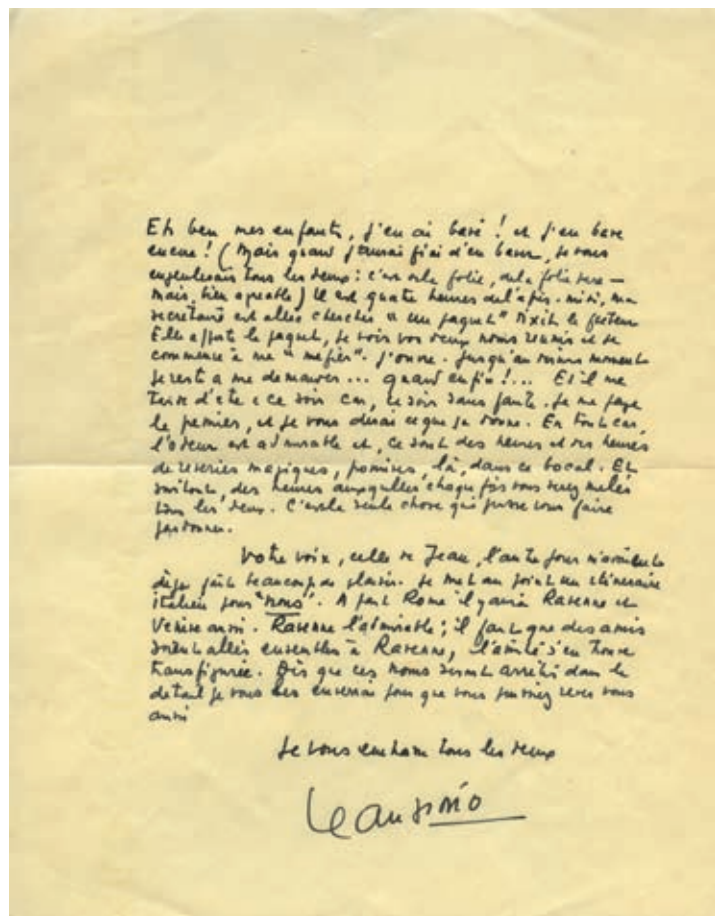 Eh ben mes enfants, j'en ai bavé ! et j'en bave
encore ! (Mais quand j'aurai fini d'en baver, je vous
engueulerais tous les deux : c'est de la folie, de la folie pure —
mais, bien agréable) Il est quatre heures de l'après-midi, ma
secrétaire est allée chercher "un paquet" dixit le facteur
Elle apporte le paquet, je vois vos deux noms réunis et je
commence à me "méfier". J'ouvre. Jusqu'au dernier moment
je reste a me demander ... quand enfin !... Et il me
tarde d'être a ce soir car, ce soir sans faute. Je me paye
le premier, et je vous dirai ce que ça donne. En tout cas,
l'odeur est admirable et, ce sont des heures et des heures
de rêveries magiques, promises, là, dans ce bocal. Et
surtout, des heures auxquelles chaque fois vous serez mêlés
tous les deux. C'est la seule chose qui puisse vous faire
pardonner.
Votre voix, celle de Jean, l'autre jour m'avaient
déjà fait beaucoup de plaisir. Je met au point un itinéraire
italien pour "nous". A part Rome il y aura Ravenne et
Venise aussi. Ravenne l'admirable ; il faut que des amis
soient allés ensembles à Ravenne, l'amitié s'en trouve
transfigurée. Dès que ces noms seront arrêtés dans le
détail je vous les enverrai pour que vous puissiez rêver vous
aussi
Je vous embrasse tous les deux
Jean Giono